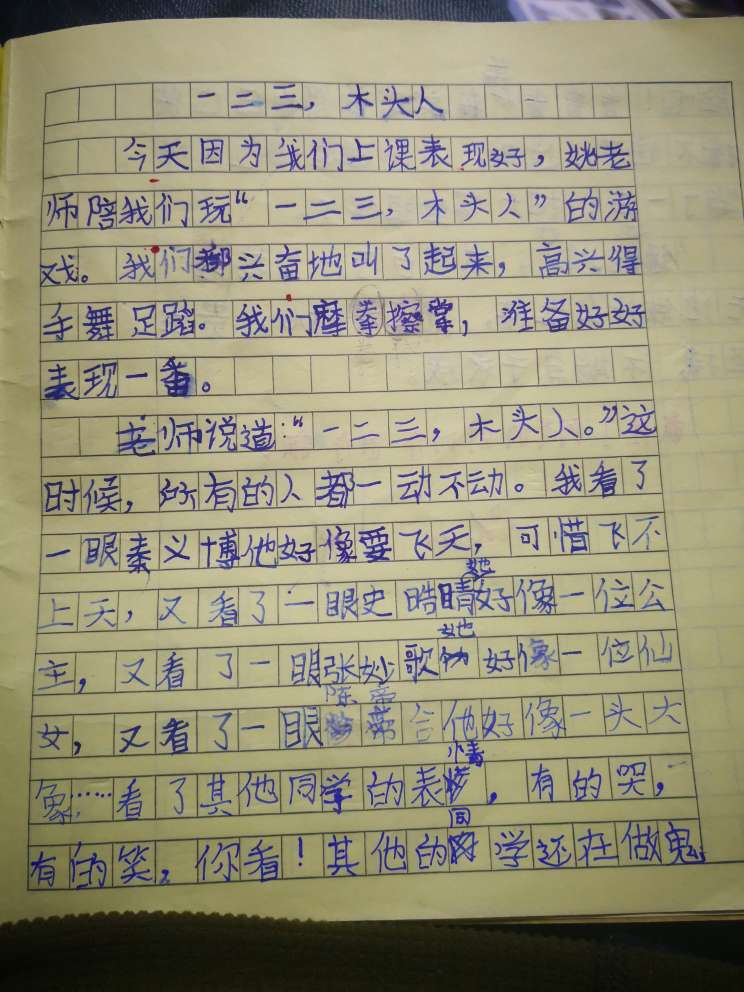 一二三，木头人
今天因为我们上课表现好，姚老
师陪我们玩“一二三，木头人”的游
戏。我们都兴奋地叫了起来，高兴得
手舞足蹈。我们摩拳擦掌，准备好好
表现一番。
老师说道：“一二三，木头人。”这
时候，所有的人都一动不动。我看了
一眼秦义博他好像要飞天，可惜飞不
上天，又看了一眼史晧晴她好像一位公
主，又看了一眼张妙歌她好像一位仙
女，又看了一眼陈帝合他好像一头大
象……看了其他同学的表情，有的哭，
有的笑，你看！其他的同学还在做鬼